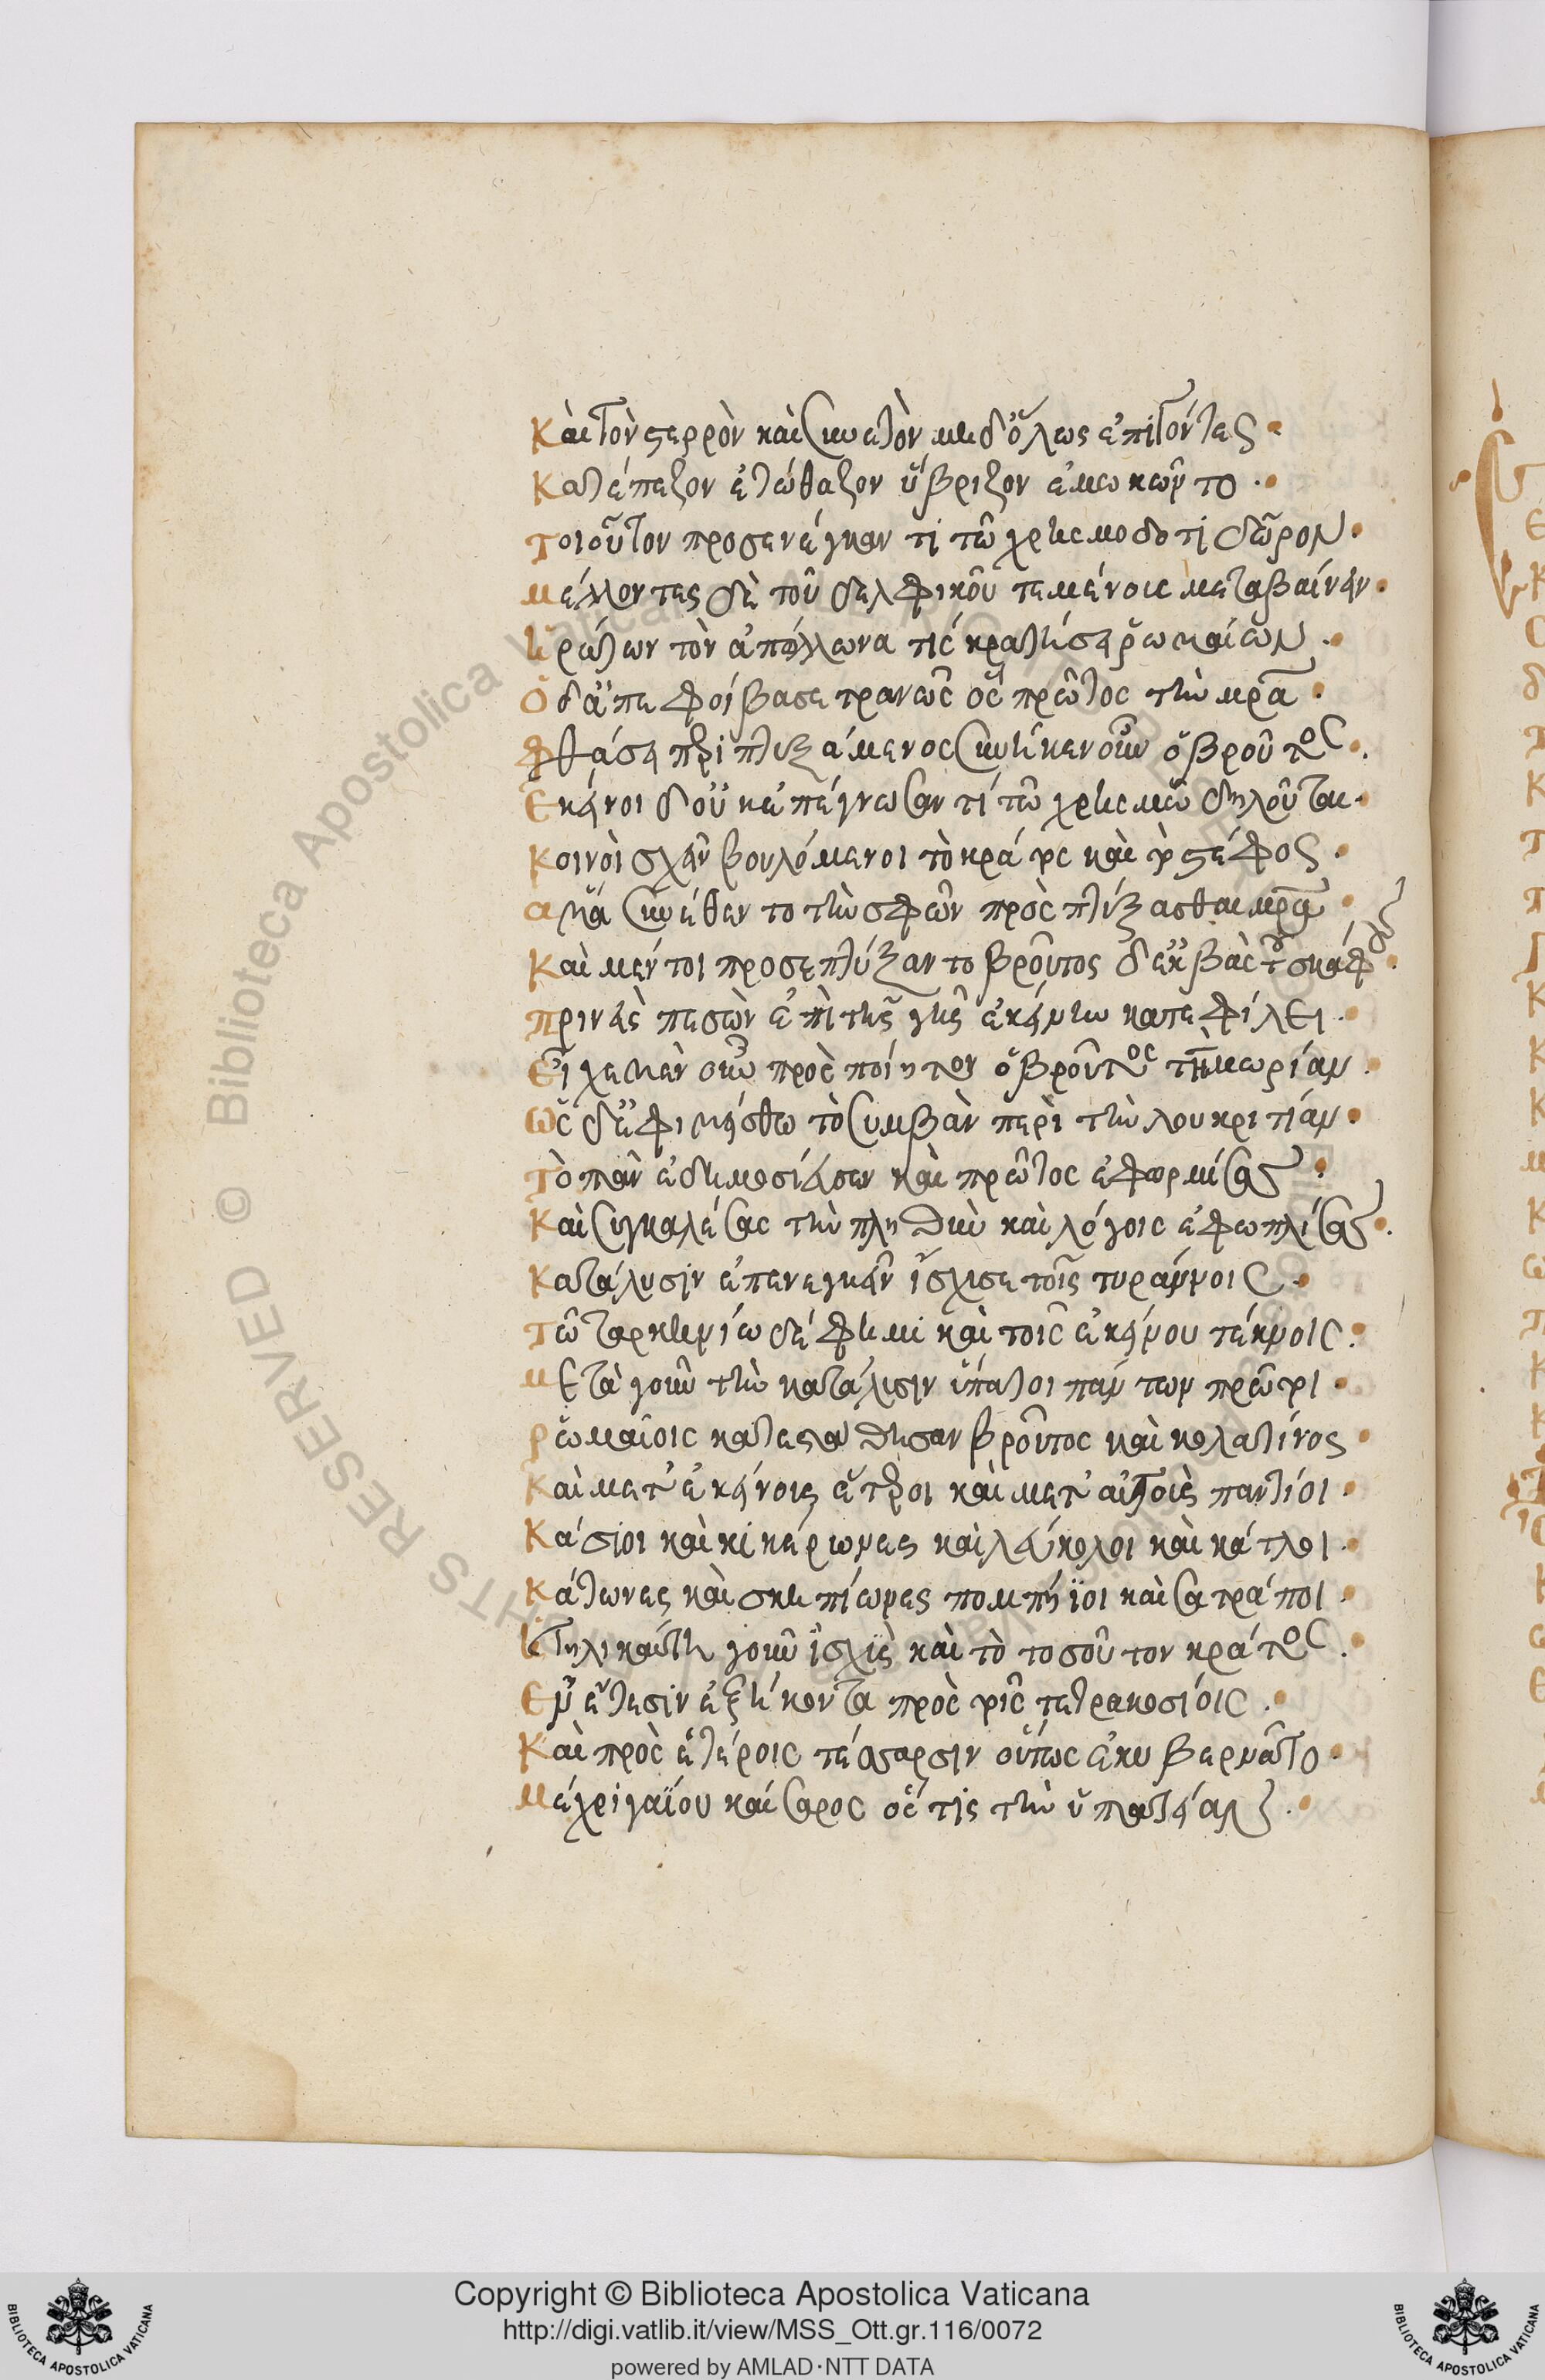 Καὶ τὸν στερρὸν καὶ συνετὸν μηδόλως ἐπιγνόντες.
Κατέπαιζον ἐτώθαζον ὕβριζον ἐμωκῶντο.
Τοιοῦτον προσενέγκαν τι τῷ χρησμοδοτι δῶρον.
Μέλλοντες δὲ τοῦ δελφικοῦ τεμένους μεταβαίνειν.
Ἠρώτων τὸν ἀπόλλωνα τίς κρατήσει ῥωμαίων.
Ὁ δ' ἀπεφοίβασε τρανῶς ὃς πρῶτος τὴν μητέρα.
Φθάσει περιπτυξάμενος συνῆκεν οὖν ὁ βροῦτος.
Ἐκεῖνοι δ' οὐκ ἐπέγνωσαν τί τῷ χρησμῷ δηλοῦται.
Κοινοὶ σχεῖν βουλόμενοι τὸ κράτος καὶ τὸ στέφος.
Ἅμα συνέθεντο τὴν σφῶν προσπτύξασθαι μητέρα.
Καὶ μέντοι προσεπτύξαντο βροῦτος δ' ἐκβὰς τοῦ σκάφους.
Πρινὴς πεσὼν ἐπὶ τῆς γῆς ἐκείνην κατεφίλει.
Εἶχε μὲν οὖν προσποίητον ὁ βροῦτος τὴν μωρίαν.
Ὡς δ' ἐφικήσθω τὸ συμβὰν περὶ τὴν λουκριτίαν.
Τὸ πᾶν ἐδημοσίευσεν καὶ πρῶτος ἐφορμήσας.
Καὶ συγκαλέσας τὴν πληθὺν καὶ λόγοις ἐφωπλίσας.
Κατάλυσιν ἐπενεγκεῖν ἴσχυσε τοῖς τυράννοις.
Τῷ ταρκυνίῳ δέ φημι καὶ τοῖς ἐκείνου τέκνοις.
Μετὰ γοῦν τὴν κατάλυσιν ὕπατοι πάντων πρῶτοι.
Ῥωμαίοις κατεστάθησαν βροῦτος καὶ κολατίνος.
Καὶ μετ' ἐκείνους ἕτεροι καὶ μετ' αὐτοὺς παντίοι.
Κάσιοι καὶ κικέρωνες καὶ λεύκολοι καὶ κάτλοι.
Κάτωνες καὶ σκηπίωνες πομπήϊοι καὶ σατράποι.
Ἡ τηλικαύτη γοῦν ἰσχὺς καὶ τὸ τοσοῦτον κράτος.
Ἐν ἔτεσιν ἑξήκοντα πρὸς τοῖς τετρακοσίοις.
Καὶ πρὸς ἑτέροις τέσσαρσιν οὕτως ἐκυβερνᾶτο.
Μέχρι γαΐου καίσαρος ὅς τις τὴν ὑπατείαν.
Copyright © Biblioteca Apostolica Vaticana
http://digi.vatlib.it/view/MSS_Ott.gr.116/0072
powered by AMLAD·NTT DATA